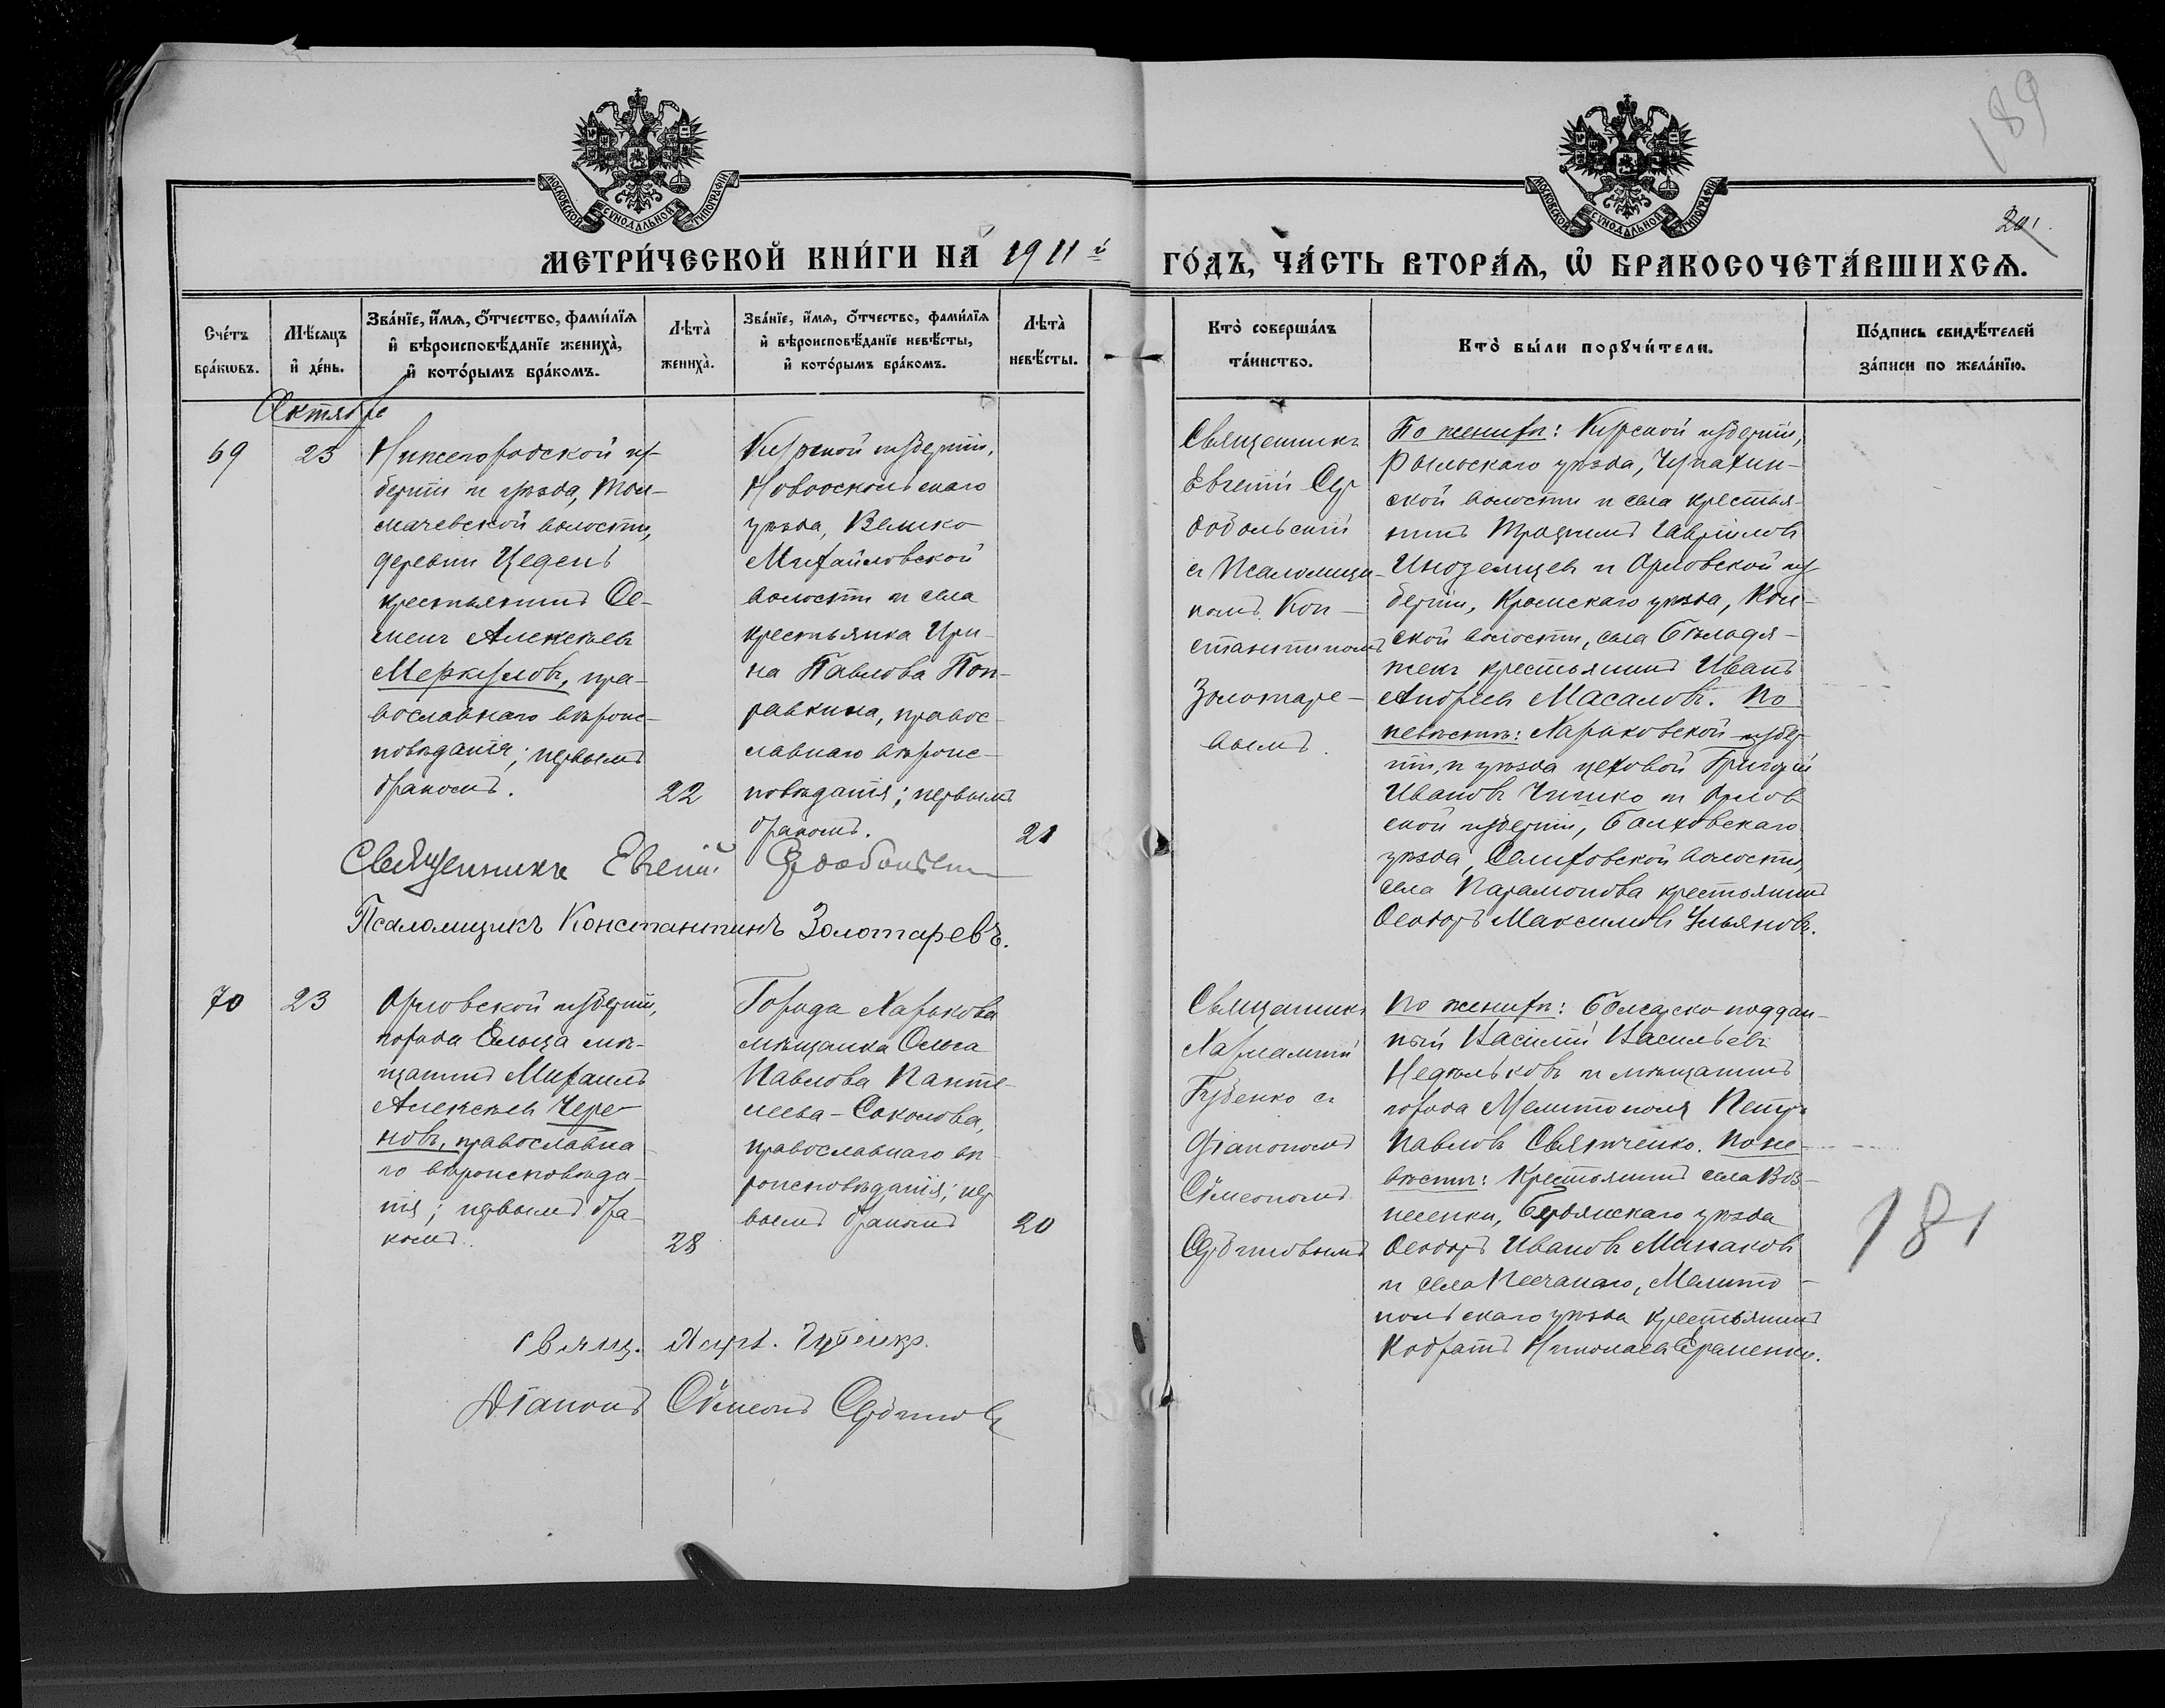 189
201.
МОСКОВСКОЙ СѴНОДАЛЬНОЙ ТИПОГРАФІИ
МОСКОВСКОЙ СѴНОДАЛЬНОЙ ТИПОГРАФІИ
МЕТРИ́ЧЕСКОЙ КНИ́ГИ НА́ 1911й ГО́ДЪ, ЧА́СТЬ ВТОРА́Ѧ, Ѡ҆ БРАКОСОЧЕТА́ВШИХСѦ.
Сче́тъ бра́кѡвъ.
Мѣ́сѧцъ и҆ де́нь.
Зва́нїе, и҆́мѧ, ѻ҆́тчество, фами́лїѧ
и҆ вѣроисповѣ́данїе жениха̀,
и҆ кото́рымъ бра́комъ.
Лѣта̀ жениха̀.
Зва́нїе, и҆́мѧ, ѻ҆́тчество, фами́лїѧ
и҆ вѣроисповѣ́данїе невѣ́сты,
и҆ кото́рымъ бра́комъ.
Лѣта̀ невѣ́сты.
Кто̀ соверша́лъ та́инство.
Кто̀ бы́ли порꙋчи́тели.
По́дпись свидѣ́телей
за́писи по жела́нїю.
Октябрь
69
23
Нижегородской гу-
берніи и уѣзда, Тол-
мачевской волости,
деревни
крестьянинъ Се-
менъ Алексѣевъ
Меркуловъ, пра-
вославнаго вѣроис-
повѣданія; первымъ
бракомъ.
22
Курской губерніи,
Новооскольскаго
уѣзда, Велико
Михайловской
волости и села
крестьянка Ири-
на Павлова Поп-
равкина, правос-
лавнаго вѣроис-
повѣданія; первымъ
бракомъ.
21
Священникъ
Евгеній Сер
добольскій
съ Псаломщи-
комъ Кон-
стантиномъ
Золотаре-
вымъ.
По женихѣ: Курской губерніи,
Рыльскаго уѣзда,
ской волости и села крестья-
нинъ Гавріиловъ
Иноземцевъ и Орловской гу-
берніи, Кромскаго уѣзда,
ской волости, села
крестьянинъ Иванъ
Андреевъ Масаловъ. По
невѣстѣ: Харьковской губер-
ніи, и уѣзда цеховой Григорій
Ивановъ и Орлов
ской губерніи, Болховскаго
уѣзда, волости,
села Парамонова крестьянинъ
Ѳеодоръ Максимовъ Ульяновъ.
Священникъ Евгеній Сердобольскій
Псаломщикъ Константинъ Золотаревъ.
70
23
Орловской губерніи,
города Ельца мѣ-
щанинъ Михаилъ
Алексѣевъ Чере-
новъ, православна-
го вѣроисповѣда-
нія; первымъ бра-
комъ.
28
Города Харькова
мѣщанка Ольга
Павлова Панте-
леева-Соколова,
православнаго вѣ-
роисповѣданія; пер
вымъ бракомъ
20
Священникъ
Харлампій
съ
діакономъ
Сѵмеономъ
По женихѣ: Болгарско поддан-
ный Василій Васильевъ
Недѣльковъ и мѣщанинъ
города Мелитополя Петръ
Павловъ Святченко. По не-
вѣстѣ: Крестьянинъ села Воз-
несенки, Бердянскаго уѣзда
Ѳеодоръ Ивановъ Минаковъ
и села Песчанаго, Мелито-
польскаго уѣзда крестьянинъ
Кодратъ Николаевъ Ераменко.
181
Свящ. Харл.
Діаконъ Сѵмеонъ